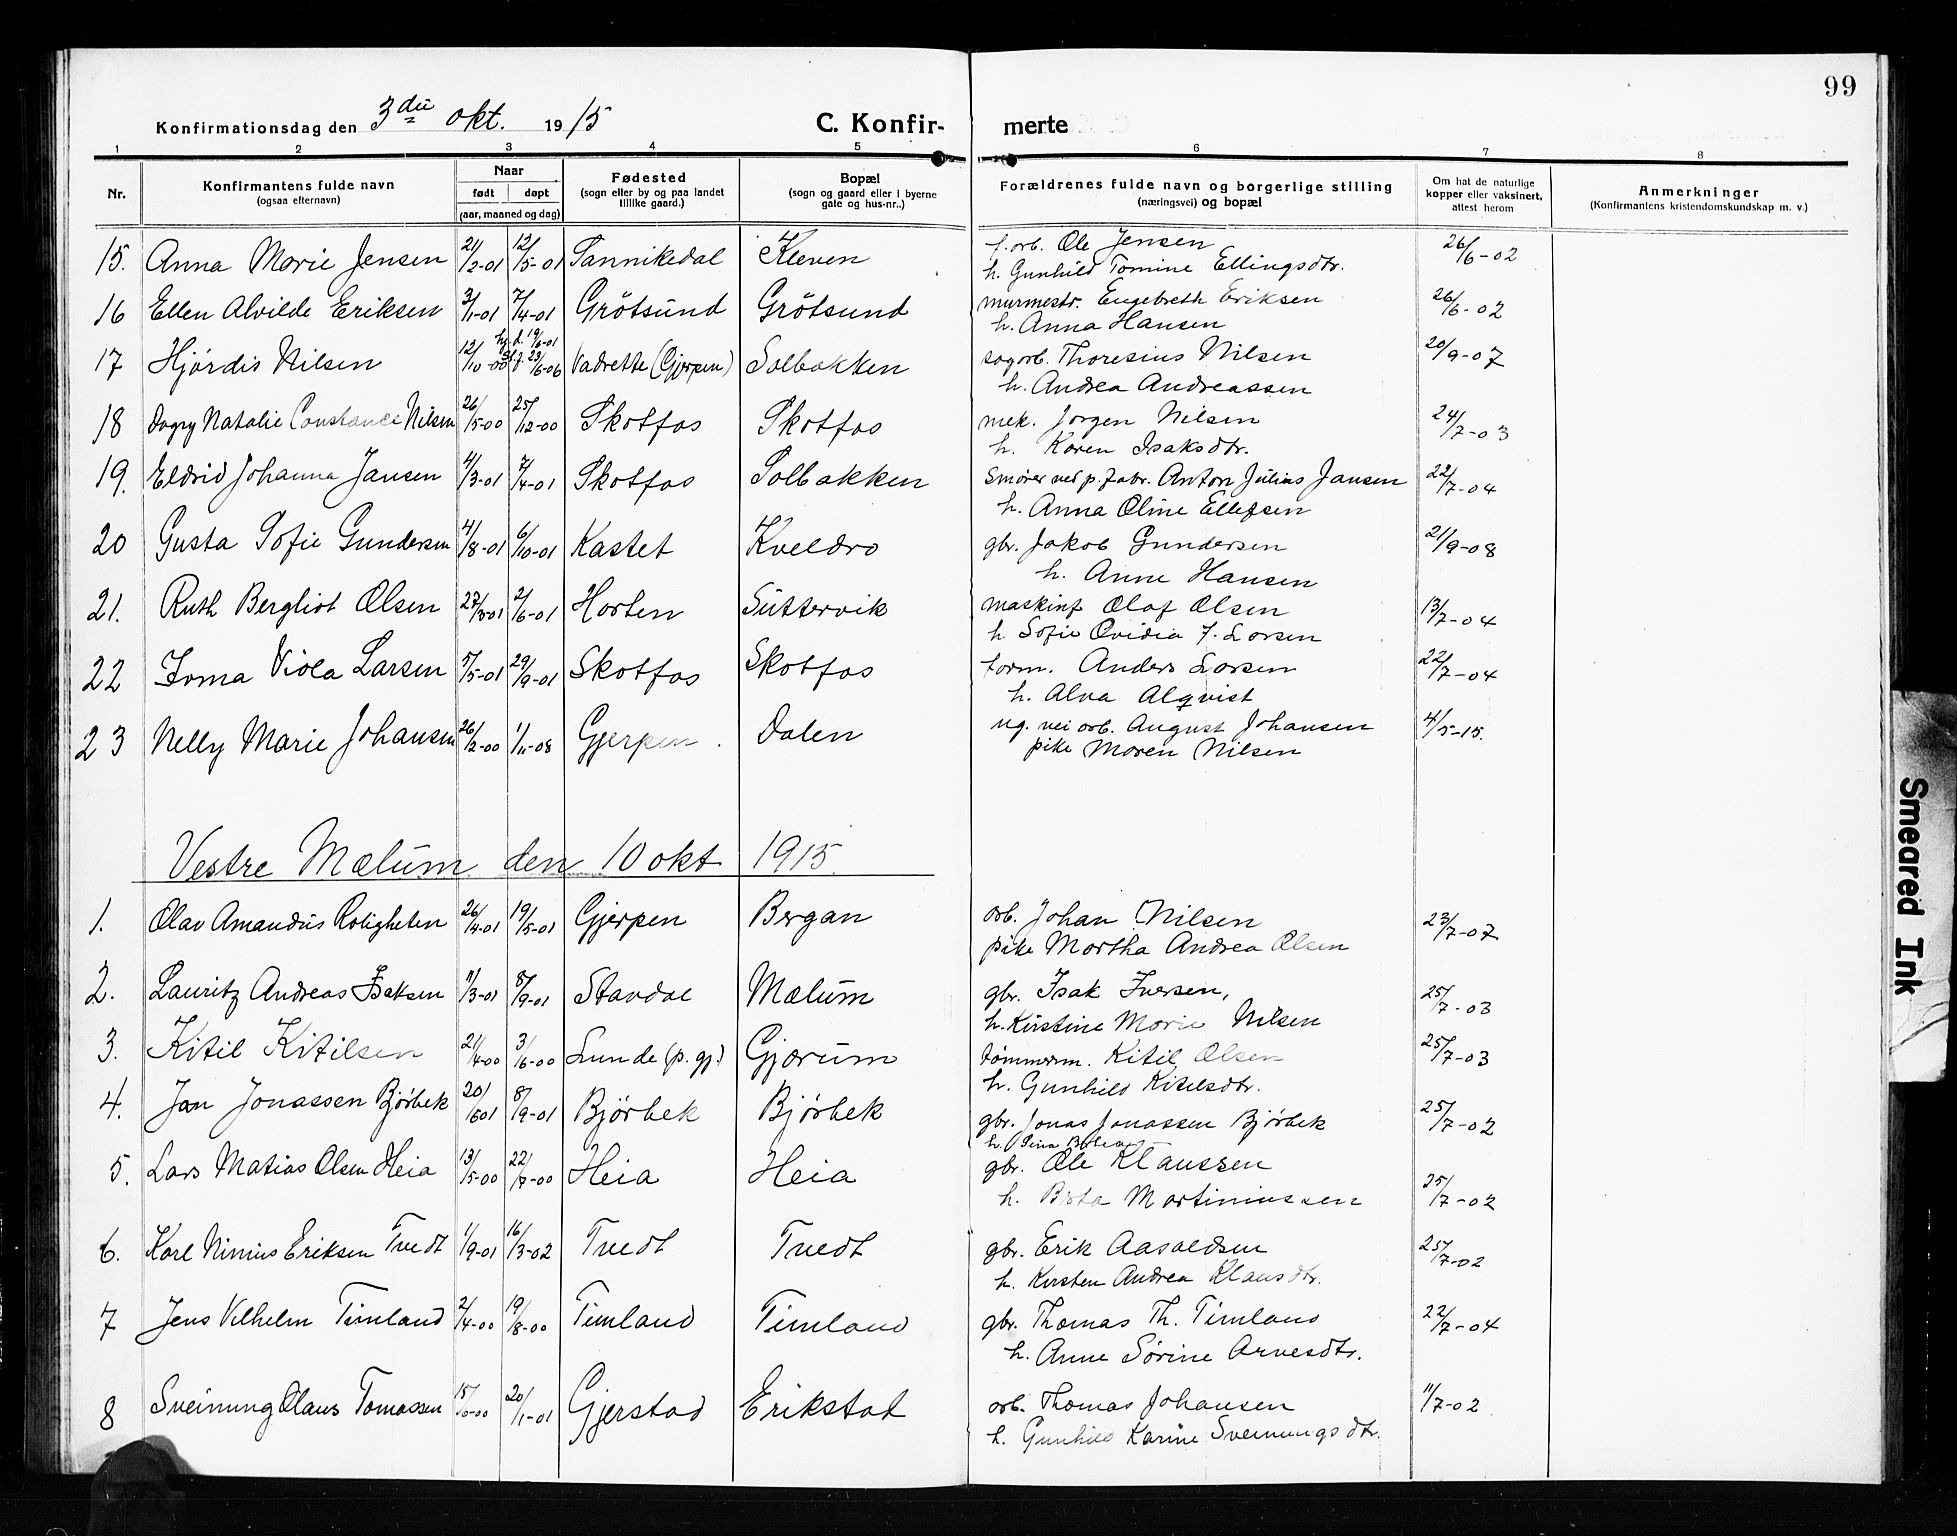 99
Konfirmationsdag den 3die okt. 1915 C. Konfir- merte
1 2 3 4 5 6 7 8
Nr. Konfirmantens fulde navn (ogsaa efternavn) Naar født døpt (aar, maaned og dag) Fødested (sogn eller by og paa landet tillike gaard.) Bopæl (sogn og gaard eller i byerne gate og hus-nr..) Forældrenes fulde navn og borgerlige stilling (næringsvei) og bopæl Om hat de naturlige kopper eller vaksinert, attest herom Anmerkninger (Konfirmantens kristendomskundskap m. v.)
15. Anna Marie Jensen 21/2-01 12/5-01 Sannikedal Kleven f. arb. Ole Jensen 26/6-02
h. Gunhild Tomine Ellingsdtr.
16 Ellen Alvilde Eriksen 3/1-01 7/4-01 Grötsund Grötsund murmestr. Engebreth Eriksen 26/6-02
h. Anna Hansen
17 Hjördis Nilsen 12/10-00 hj. d. 19/6-01 23/6-06 Vadrette (Gjerpen) Solbakken sagarb. Thoresius Nilsen 20/9-07
h. Andrea Andreassen
18 Dagny Natalie Constance Nilsen 26/5-00 25/12-00 Skotfos Skotfos mek. Jørgen Nilsen 24/7-03
h. Karen Isaksdtr.
19. Eldrid Johanna Jansen 4/3-01 7/4-01 Skotfos Solbakken Smører ved p. fabr. Anton Julius Jansen 22/7-04
h. Anna Oline Ellefsen
20 Gusta Sofie Gundersen 4/8-01 6/10-01 Kastet Kveldro gbr. Jakob Gundersen 21/9-08
h. Anne Hansen
21. Ruth Bergliot Olsen 27/3-01 2/6-01 Horten Süttervik maskinf Olaf Olsen 13/7-04
h. Sofie Ovidia f. Larsen
22 Irma Viola Larsen 5/5-01 29/9-01 Skotfos Skotfos form. Anders Larsen 22/7-04
h. Alva Alqvist
23 Nelly Marie Johansen 26/2-00 1/11-08 Gjerpen. Dalen ug. vei arb. August Johansen 4/5-15.
pike Maren Nilsen
Vestre Mælum den 10 okt 1915.
1. Olav Amandus Roligheten 26/4-01 19/5-01 Gjerpen Bergan arb. Johan Nilsen 23/7-07
pike Martha Andrea Olsen
2. Lauritz Andreas Isaksen 11/3-01 8/9-01 Stavdal Mælum gbr. Isak Iversen, 25/7-03
h. Kirstine Marie Nilsen
3. Kitil Kitilsen 21/4-00 3/6-00 Lunde (p. gj.) Gjærum tömmerm. Kitil Olsen 25/7-03
h. Gunhild Kitilsdtr.
4. Jan Jonassen Bjørbek 20/6 01 8/9-01 Bjørbek Bjørbek gbr. Jonas Jonassen Bjørbek 25/7-02
h.
5. Lars Matias Olsen Heia 13/5-00 22/7-00 Heia Heia gbr. Ole Klaussen 25/7-02
h. Berta Martiniussen
6. Karl Ninius Eriksen Tvedt 1/9-01 16/3-02 Tvedt Tvedt gbr. Erik Aasoldsen 25/7-02
h. Kirsten Andrea Klausdtr.
7 Jens Vilhelm Timland 2/4-00 19/8-00 Timland Timland gbr. Thomas Th. Timland 22/7-04
h. Anne Sørine Arvesdtr.
8 Sveinung Olaus Tomassen 15/10-00 20/1-01 Gjerstad Erikstad arb. Thomas Johansen 11/7-02
h. Gunhild Karine Sveinungsdtr.
Smeared Ink